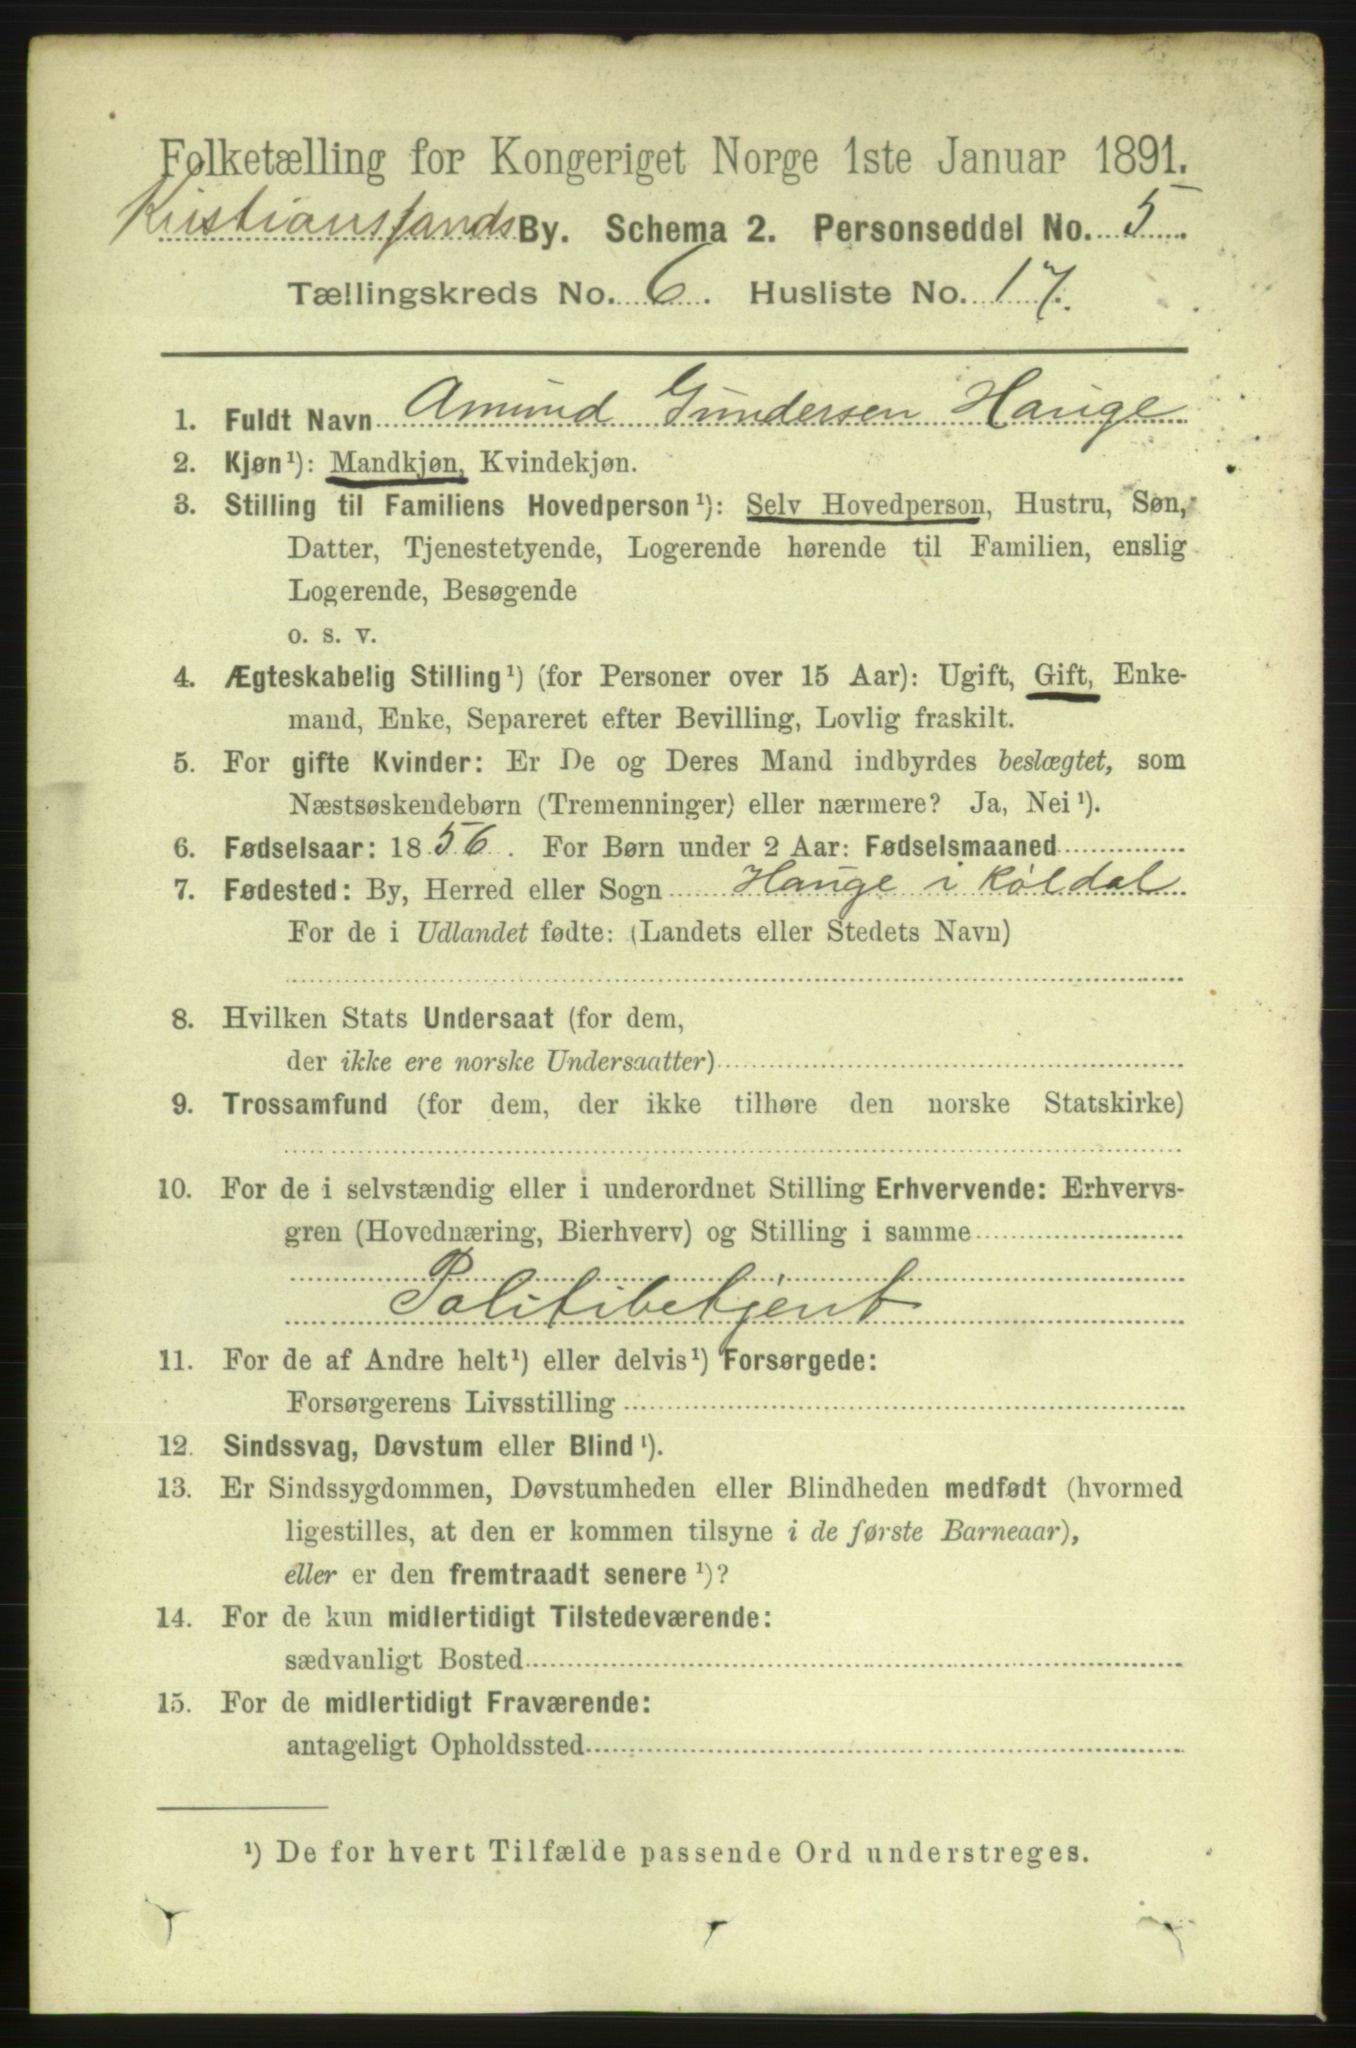 Folketælling for Kongeriget Norge 1ste Januar 1891.
Kristianssands By. Schema 2. Personseddel No. 5
Tællingskreds No. 6. Husliste No. 17.
1. Fuldt Navn Amund Gundersen Hauge
2. Kjøn¹): Mandkjøn, Kvindekjøn.
3. Stilling til Familiens Hovedperson¹): Selv Hovedperson, Hustru, Søn,
Datter, Tjenestetyende, Logerende hørende til Familien, enslig
Logerende, Besøgende
o. s. v.
4. Ægteskabelig Stilling¹) (for Personer over 15 Aar): Ugift, Gift, Enke-
mand, Enke, Separeret efter Bevilling, Lovlig fraskilt.
5. For gifte Kvinder: Er De og Deres Mand indbyrdes beslægtet, som
Næstsøskendebørn (Tremenninger) eller nærmere? Ja, Nei¹).
6. Fødselsaar: 1856. For Børn under 2 Aar: Fødselsmaaned
7. Fødested: By, Herred eller Sogn Hauge i Røldal
For de i Udlandet fødte: (Landets eller Stedets Navn)
8. Hvilken Stats Undersaat (for dem,
der ikke ere norske Undersaatter)
9. Trossamfund (for dem, der ikke tilhøre den norske Statskirke)
10. For de i selvstændig eller i underordnet Stilling Erhvervende: Erhvervs-
gren (Hovednæring, Bierhverv) og Stilling i samme
Politibetjent
11. For de af Andre helt¹) eller delvis¹) Forsørgede:
Forsørgerens Livsstilling
12. Sindssvag, Døvstum eller Blind¹).
13. Er Sindssygdommen, Døvstumheden eller Blindheden medfødt (hvormed
ligestilles, at den er kommen tilsyne i de første Barneaar),
eller er den fremtraadt senere¹)?
14. For de kun midlertidigt Tilstedeværende:
sædvanligt Bosted
15. For de midlertidigt Fraværende:
antageligt Opholdssted
¹) De for hvert Tilfælde passende Ord understreges.